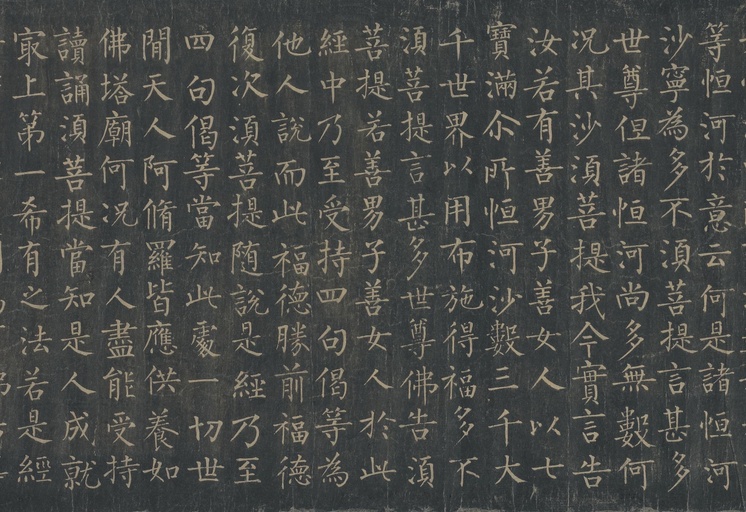 等恒河於意云何是諸恒河
沙寧為多不須菩提言甚多
世尊但諸恒河尚多無數何
況其沙須菩提我今實言告
汝若有善男子善女人以七
寶滿尒所恒河沙數三千大
千世界以用布施得福多不
須菩提言甚多世尊佛告須
菩提若善男子善女人於此
經中乃至受持四句偈等為
他人說而此福德勝前福德
復次須菩提隨說是經乃至
四句偈等當知此處一切世
間天人阿脩羅皆應供養如
佛塔廟何況有人盡能受持
讀誦須菩提當知是人成就
冣上第一希有之法若是經